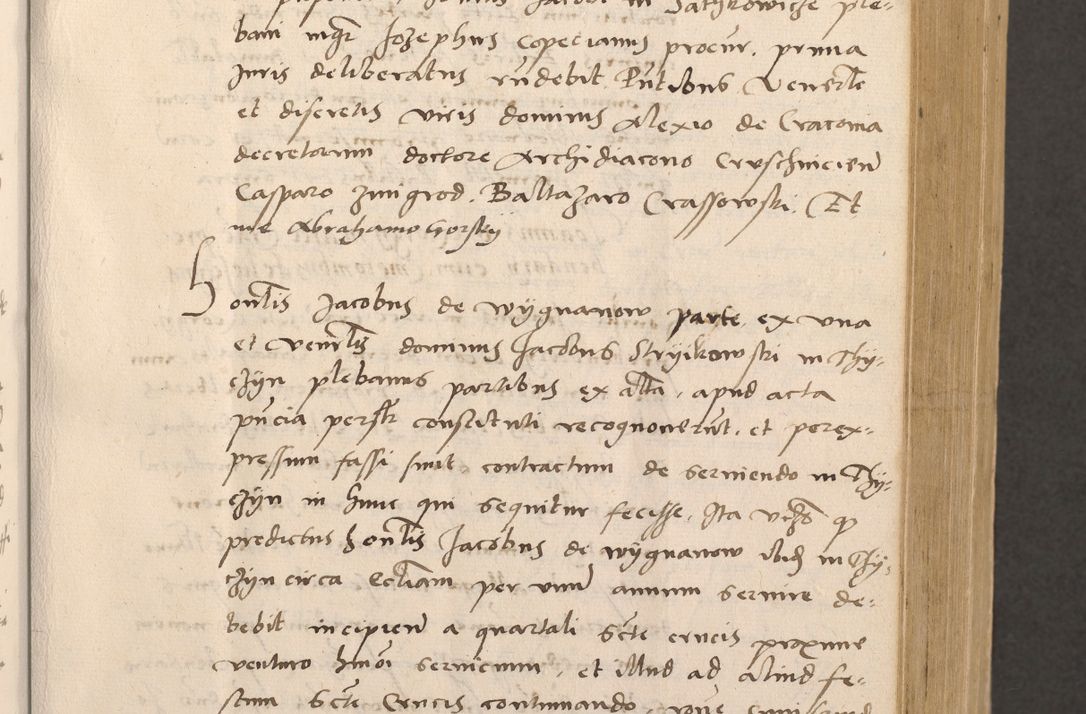 Jacobi in Sathkowicze ple-
bani mgr Jozephus Copecianus procur. prima
Juris deliberatus rndebit. Pntibus Venerle
et discretis viris dominis Alexio de Cracovia
decretorum doctore Archidiacono Cruschvicien
Casparo Zmigrod. Baltazaro Crassowski. Et
me Abrahamo Gorskÿ
Honlis Jacobus de Wÿgnanow parte ex una
et venerlis dominus Jacobus Strÿikowski in Thÿ-
czÿn plebanus partibus ex alta, apud acta
pncia personlr constituti recognoverunt. et perex-
pressum fassi sunt contractum de serviendo in Thÿ-
czÿn in hunc qui sequitur fecisse. Ita vidz qp
predictus honlis Jacobus de Wÿgnanow ibidem in Thÿ-
czÿn circa Ecliam per unum annum servire de-
bebit incipien a quartali Scte crucis proxime
venturo hmoi servicium, et illud ad aliud fe-
stum Scte Crucis continuando.